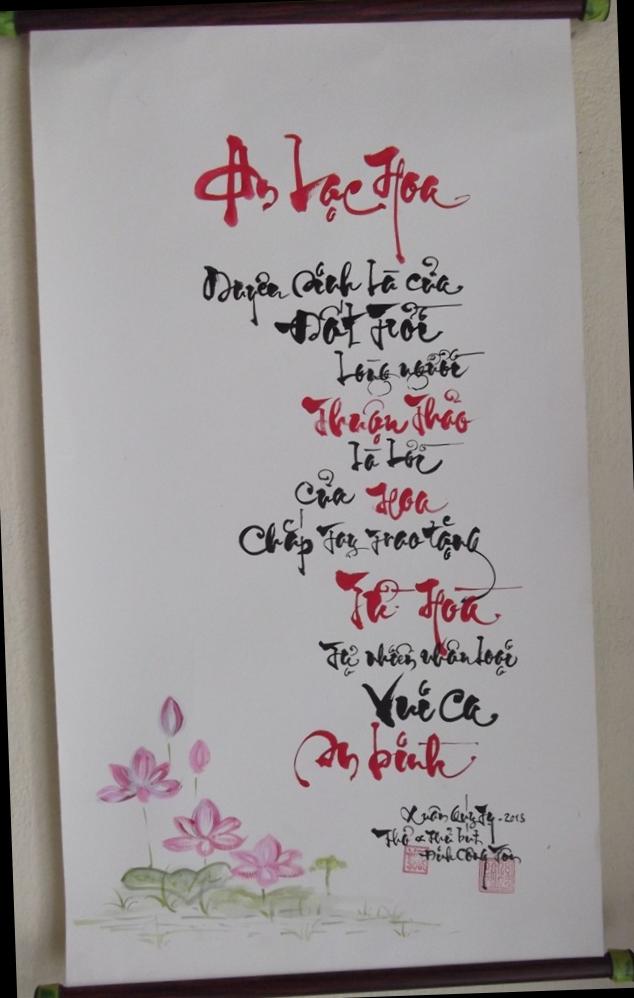 An Lạc Hoa
Duyên sinh là của
Đất Trời
Lòng người
Thuận Thảo
là lời
của Hoa
Chắp Tay trao tặng
Tử Hoà
Tự nhiên nhân loại
Vui Ca
An bình
Xuân Quý Tỵ - 2013
Thơ & Thủ bút
Đinh Công Tôn